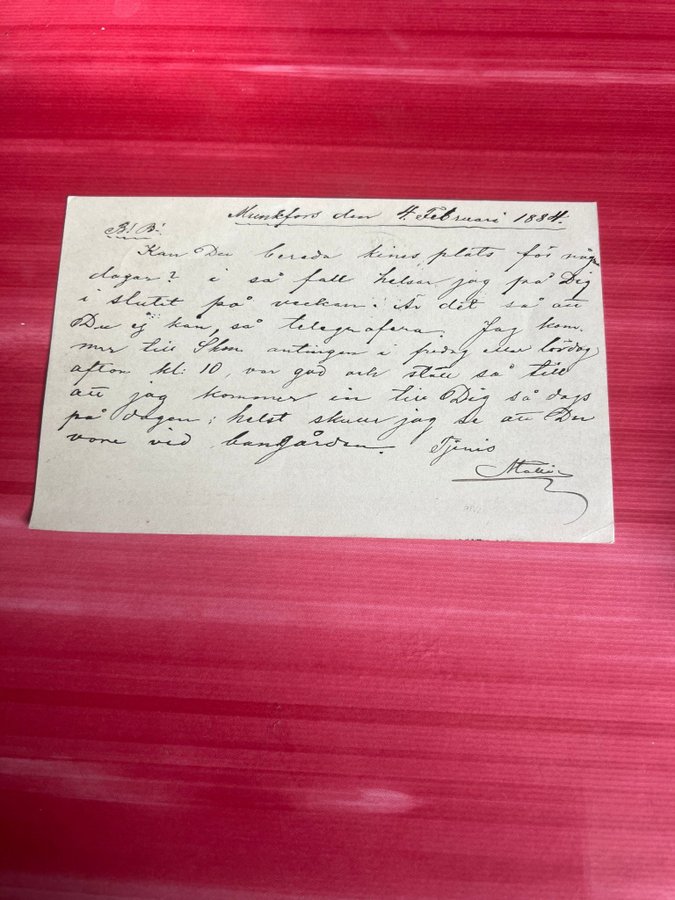 Munkfors den 4 Februari 1884.
B! B!
Kan Du bereda hines plats för några
dagar? i så fall helsar jag på Dig
i slutet på veckan. Är det så att
Du ej kan, så telegrafera. Jag kom-
mer till Shm antingen i fredag eller lördag
afton kl: 10, var god och ställ så till
att jag kommer in till Dig så dags
på dagen; helst skulle jag se att Du
vore vid bangården. Tjenis